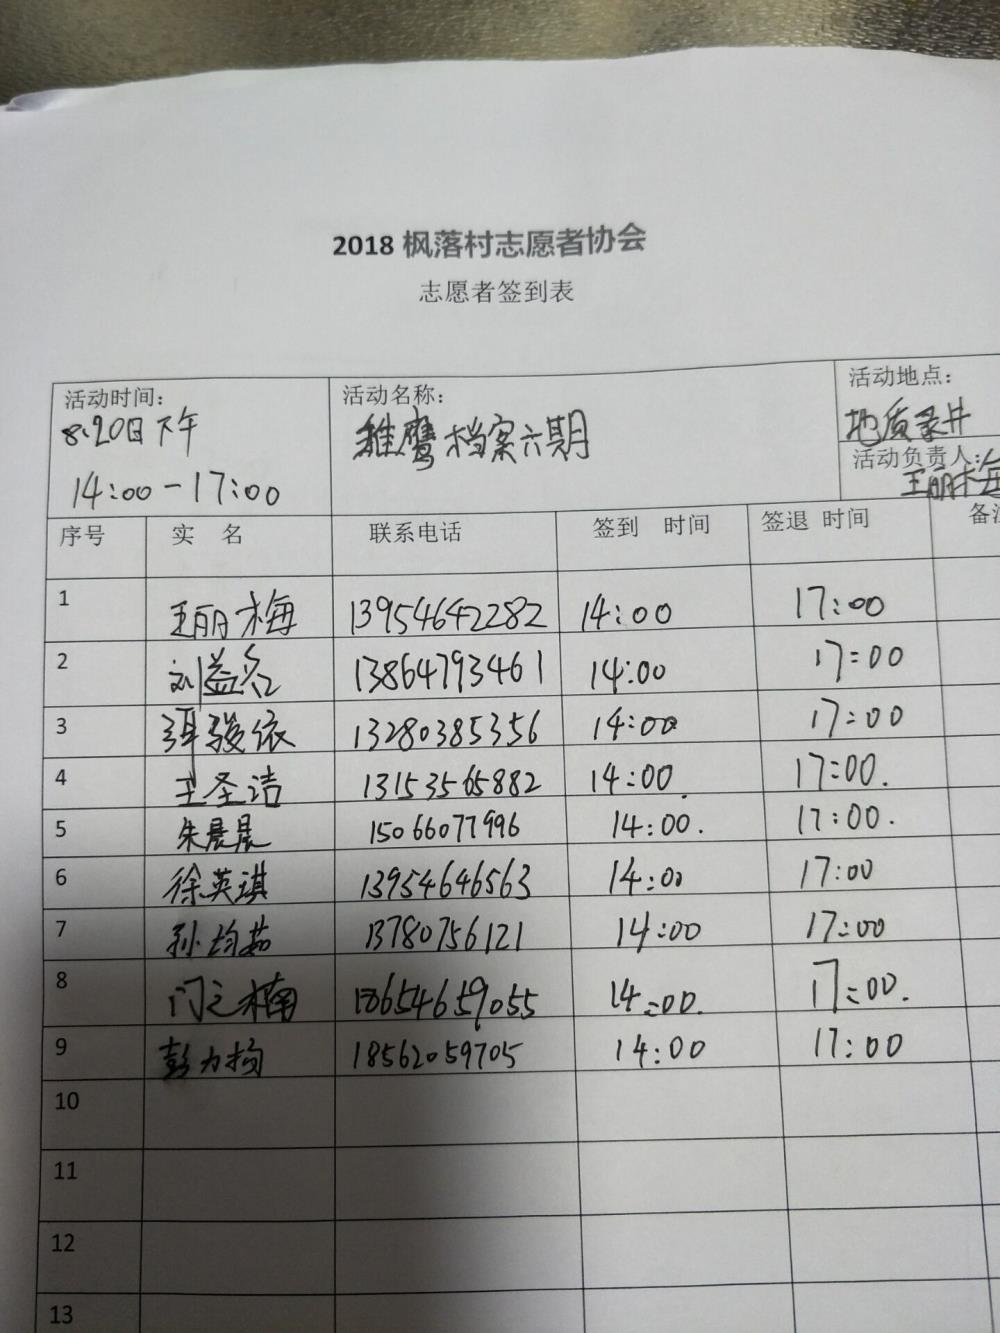 2018 枫落村志愿者协会
志愿者签到表
活动时间： 活动名称： 活动地点：
8.20日下午 雏鹰档案六期
14:00-17:00 活动负责人：王丽梅
序号 实 名 联系电话 签到 时间 签退 时间
1 王丽梅 13954642282 14:00 17:00
2 13864793461 14:00 17:00
3 骏依 13280385356 14:00 17:00
4 王圣洁 13153565882 14:00. 17:00.
5 朱晨晨 15066077996 14:00. 17:00.
6 徐英琪 13954646563 14:00 17:00
7 孙均茹 13780756121 14:00 17:00
8 门之楠 18654659055 14:00. 17:00.
9 彭力扬 18562059705 14:00 17:00
10
11
12
13